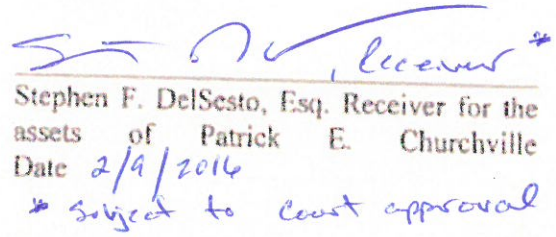 , Receiver *
Stephen F. DelSesto, Esq. Receiver for the
assets of Patrick E. Churchville
Date 2/9/2016
* subject to court approval